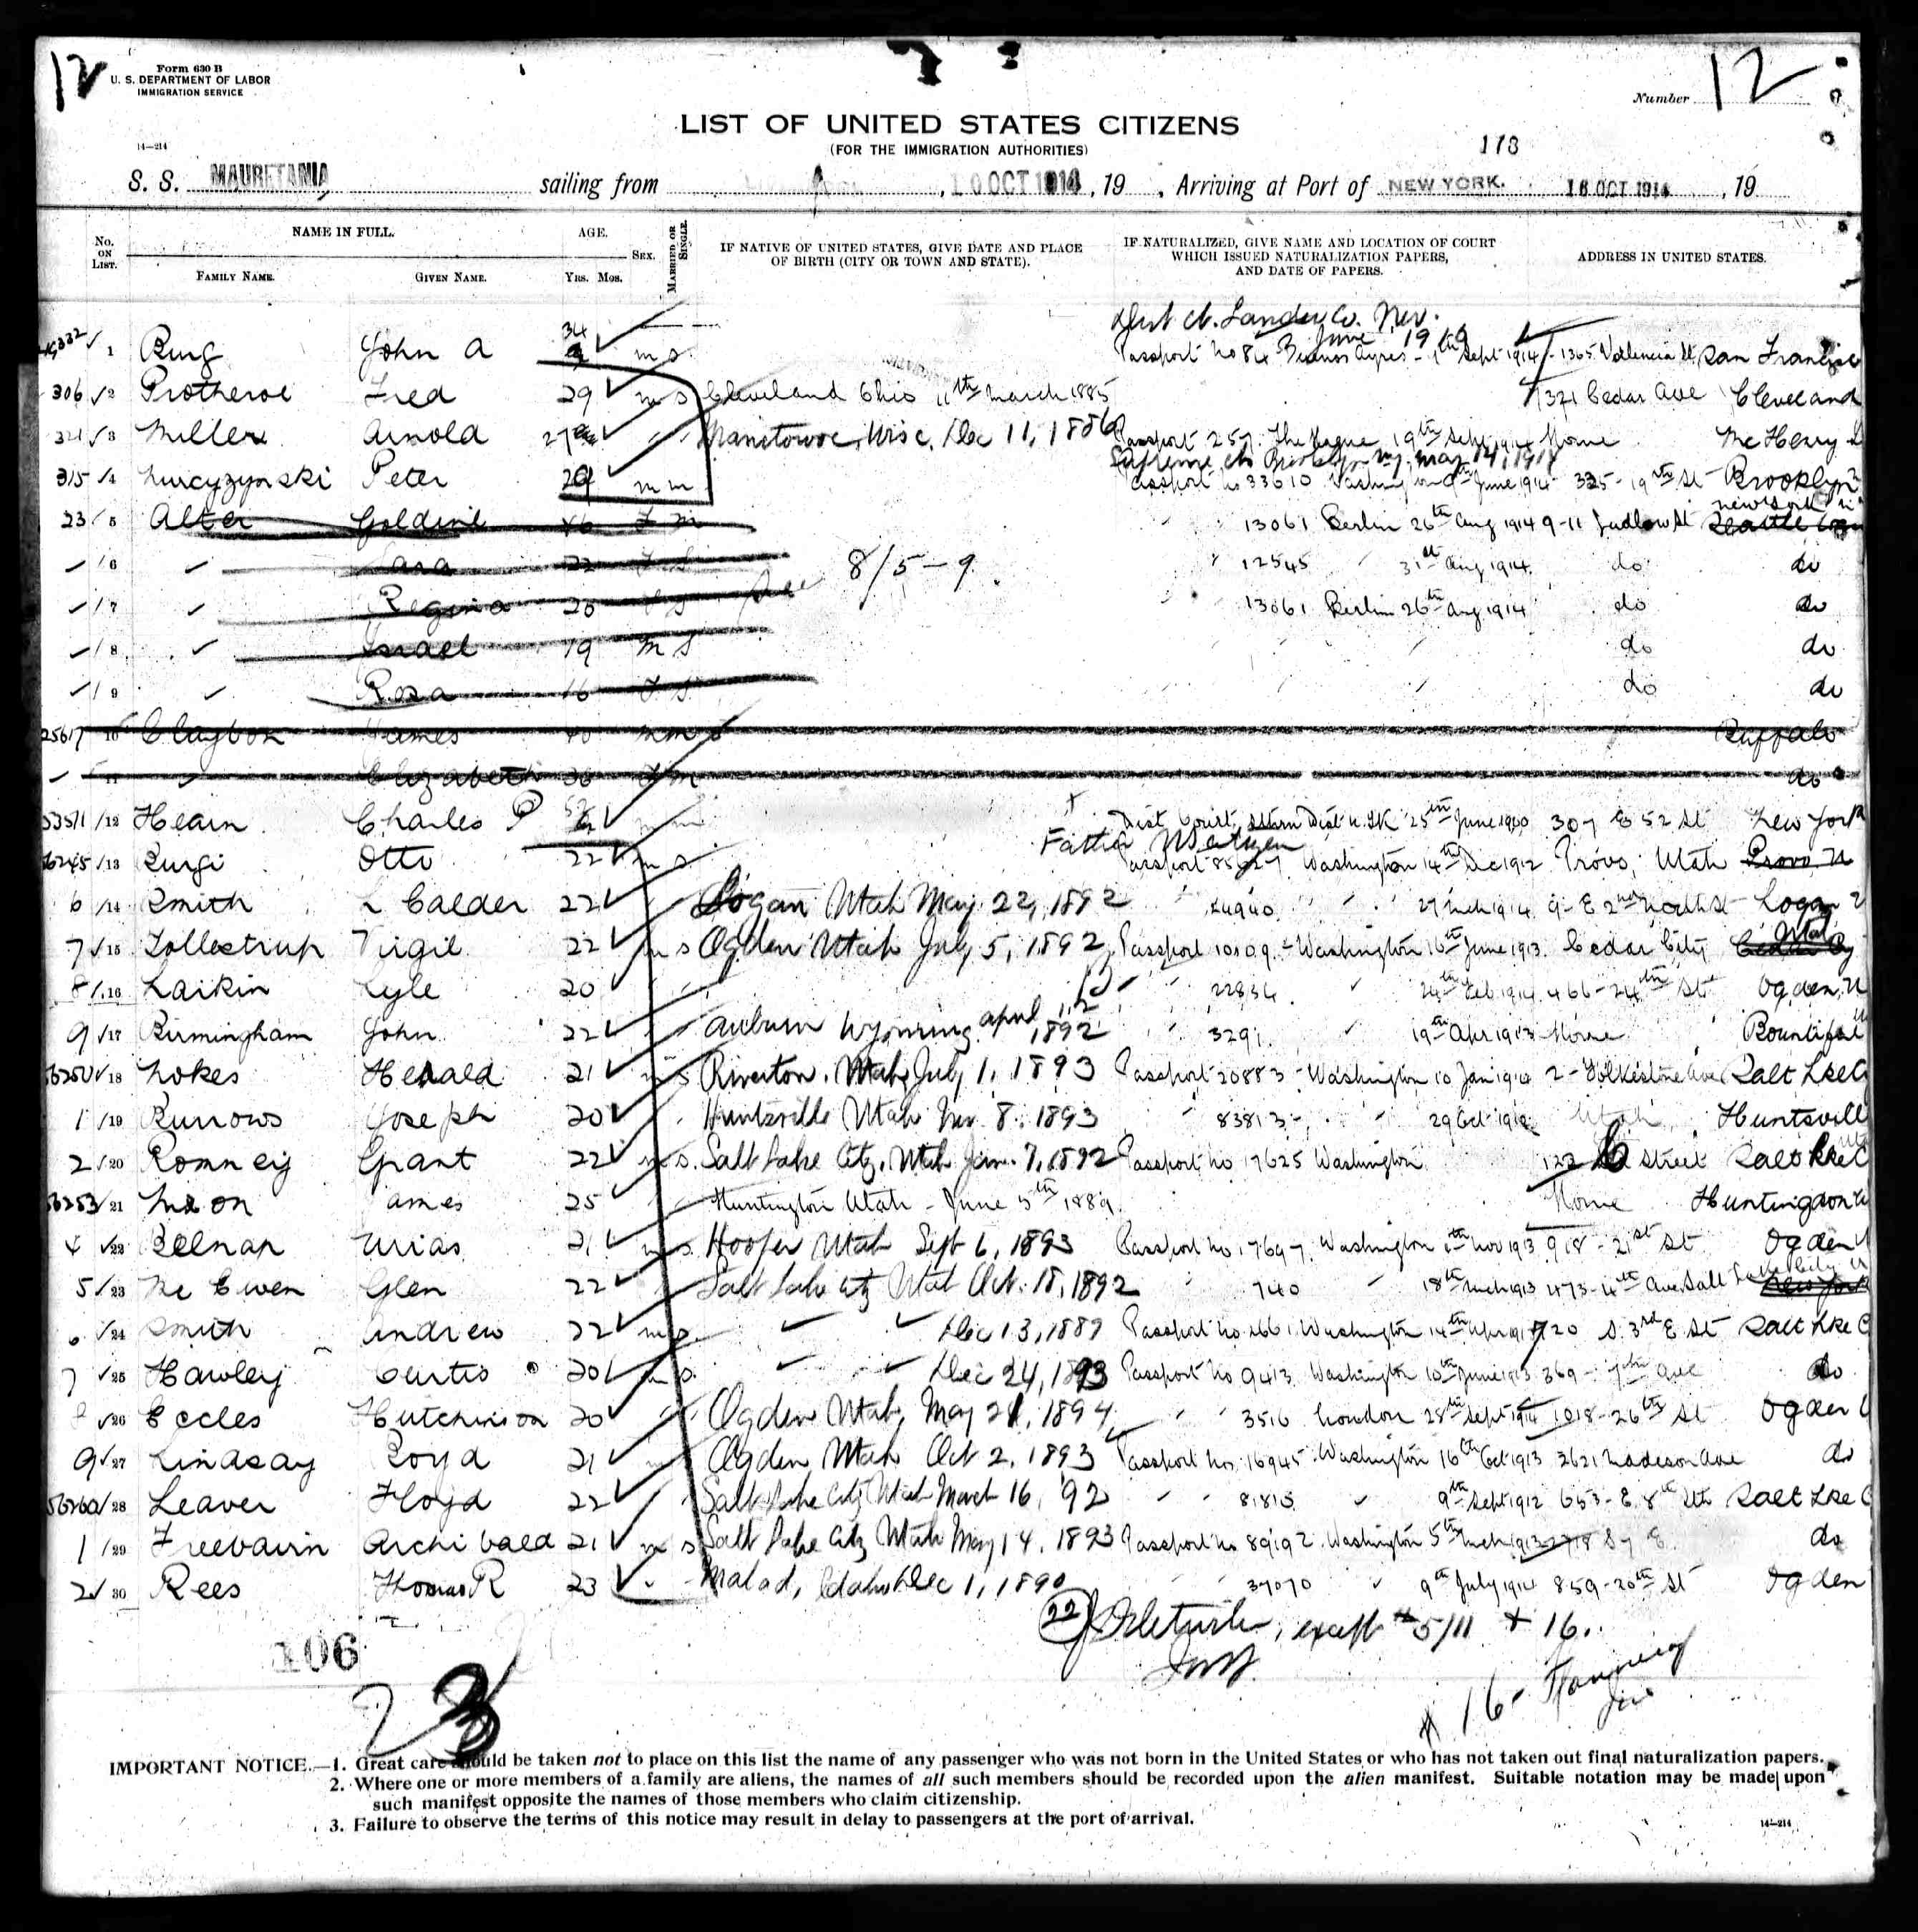 12
Form 630 B
U. S. DEPARTMENT OF LABOR
IMMIGRATION SERVICE
Number 12
LIST OF UNITED STATES CITIZENS
(FOR THE IMMIGRATION AUTHORITIES)
178
14—214
S. S. MAURETANIA sailing from , 10 OCT 1914, 19 , Arriving at Port of NEW YORK. 16 OCT 1914, 19
No. ON LIST. NAME IN FULL. FAMILY NAME. GIVEN NAME. AGE. YRS. MOS. SEX. MARRIED OR SINGLE. IF NATIVE OF UNITED STATES, GIVE DATE AND PLACE OF BIRTH (CITY OR TOWN AND STATE). IF NATURALIZED, GIVE NAME AND LOCATION OF COURT WHICH ISSUED NATURALIZATION PAPERS, AND DATE OF PAPERS. ADDRESS IN UNITED STATES.
Dist Ct. Lander Co. Nev.
June 19
1 John A 34 m s Passport No 84 Buenos Ayres - Sept 1914 - 1365 Valencia St San Francisc
306 2 Protheroe Fred 29 m s Cleveland Ohio 11th March 1885 7321 Cedar Ave Cleveland
321 3 Miller Arnold 27 Manitowoc, Wisc. Dec 11, 1886 Passport 257. The Hague 19th Sept 1914 Home Mc Henry
Supreme Ct Brooklyn N.Y. May 14,
315 4 Peter 29 m m Passport No 33610 Washington June 1914 325-19th St Brooklyn
New York
23 5 Alter Goldine 46 f m 13061 Berlin 26th Aug 1914 9-11 Ludlow St Seattle
6 Sara 22 f s 12545 31st Aug 1914 do do
8/5-9.
7 Regina 20 f s 13061 Berlin 26th Aug 1914 do do
8 Israel 19 m s do do
9 Rosa 16 f s do do
25617 10 Claybon James 40 m m Buffalo
11 Elizabeth 38 f m do
53511 12 Hearn Charles P m m Dist Court, Dist N.Y. 25th June 1900 307 E 52 St New York
Father
56245 13 Otto 22 m s Passport 85627 Washington 14th Dec 1912 Provo, Utah Provo U
6 14 Smith L Calder 22 Logan Utah May 22, 1892 24940 27 Mch 1914 9-E 2nd North St Logan U
Utah
7 15 Tollestrup Virgil 22 m s Ogden Utah July 5, 1892 Passport 10109 - Washington 16th June 1913. Cedar City Cedar Cy
8 16 Larkin Lyle 20 22834 24th Feb 1914 466-24th St Ogden, U
9 17 Birmingham John 22 Auburn Wyoming April 12 1892 3291 19th Apr 1913 Home Bountiful
56250 18 Nokes Herald 21 m s Riverton, Utah July 1, 1893 Passport 20883 - Washington 10 Jan 1914 2-Folkestone Ave Salt Lke C
1 19 Burrows Joseph 20 Huntsville Utah Nov 8. 1893 83813 - 29 Oct 1912 Utah Huntsvill
2 20 Romney Grant 22 m s. Salt Lake City, Utah Jan. 7, 1892 Passport no 17625 Washington 122 Street Salt Lke C
56253 21 James 25 Huntington Utah - June 5th 1889 Home Huntingdon U
4 22 Belnap Urias 21 m s. Hooper Utah Sept 6, 1893 Passport no 17697 Washington Nov 1913 918-21st St Ogden U
5 23 Mc Ewen Glen 22 Salt Lake City Utah Oct. 18, 1892 740 18th Mch 1913 473-4th Ave Salt Lake City U
6 24 Smith Andrew 22 m s. Dec 13, 1889 Passport no. 2661 Washington 14th Apr 1913 720 S. 3rd E St Salt Lke C
7 25 Hawley Curtis 20 m s. Dec 24, 1893 Passport No 9413 Washington 10th June 1913 369-7th Ave do
8 26 Eccles Hutchinson 20 Ogden Utah, May 21, 1894 3516 London 28th Sept 1914 1018-26th St Ogden U
9 27 Lindsay Royd 21 Ogden Utah Oct 2, 1893 Passport No. 16945 Washington 16th Oct 1913 2621 Madison Ave do
56260 28 Leaver Floyd 22 Salt Lake City Utah March 16, '92 81815 9th Sept 1912 653-E. 8th Sth Salt Lke C
1 29 Freebairn Archibald 21 m s Salt Lake City Utah May 14, 1893 Passport no 89192 Washington 5th Mch 1913 2718 S 7 E do
2 30 Rees Thomas R 23 Malad, Idaho Dec 1, 1890 37070 9th July 1914 859-20th St Ogden
22 except #5/11 + 16.
106
23
# 16-
IMPORTANT NOTICE.—1. Great care should be taken not to place on this list the name of any passenger who was not born in the United States or who has not taken out final naturalization papers.
2. Where one or more members of a family are aliens, the names of all such members should be recorded upon the alien manifest. Suitable notation may be made upon
such manifest opposite the names of those members who claim citizenship.
3. Failure to observe the terms of this notice may result in delay to passengers at the port of arrival.
14—214